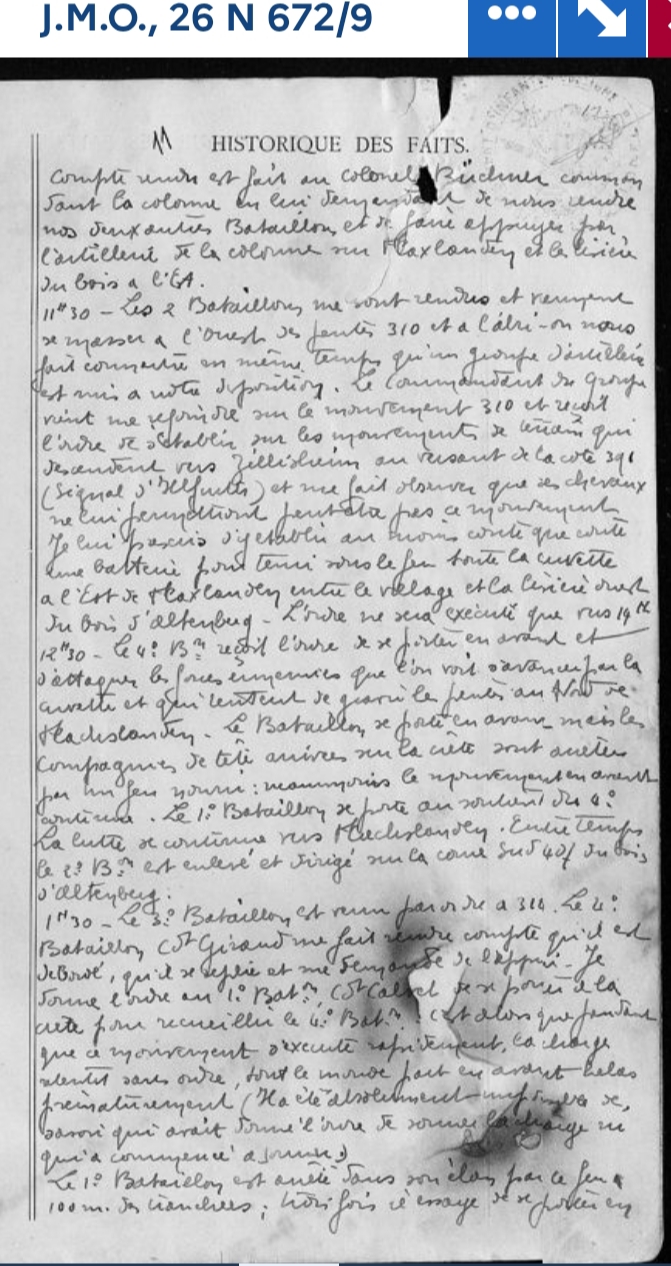 J.M.O., 26 N 672/9
11 HISTORIQUE DES FAITS.
Compte rendu est fait au colonel Büchner comman
dant la colonne en lui demandant de nous rendre
nos deux autres Bataillons et de faire appuyer par
l'artillerie de la colonne sur Flaxlanden et la lisière
du bois a l'Est.
11h30 – Les 2 Bataillons me sont rendus et viennent
se masser a l'Ouest des pentes 310 et a l'abri – on nous
fait connaitre en même temps qu'un groupe d'artillerie
est mis a notre disposition. Le Commandant du Groupe
vient me rejoindre sur le mouvement 310 et reçoit
l'ordre de s'établir sur les mouvements de terrain qui
descendent vers Zillisheim au versant de la cote 391
(Signal d'Illfurth) et me fait observer que ses chevaux
ne lui permettront peut être pas ce mouvement
Je lui d'y établir au moins coute que coute
une batterie pour tenir sous le feu toute la cuvette
a l'Est de Flaxlanden entre le village et la lisière ouest
du bois d'Altenberg – L'ordre ne sera exécuté que vers 14h
12h30 – Le 4e Bon reçoit l'ordre de se porter en avant et
d'attaquer les forces ennemies que l'on voit s'avancer par la
cuvette et qui tentent de gravir les pentes au Nord de
Flachslanden. Le Bataillon se porte en avant, mais les
Compagnies de tête arrivées sur la crête sont arrêtées
par un feu nourri : néanmoins le mouvement en avant
continue. Le 1e Bataillon se porte au soutien du 4e
La lutte se continue vers Flachslanden. Entre temps
le 2e Bon est enlevé et dirigé sur la corne Sud du bois
d'Altenberg.
1h30 – Le 3e Bataillon est venu par ordre a 310. Le 4e
Bataillon Ct Giraud me fait rendre compte qu'il est
débordé, qu'il se replie et me demande de l'appui – Je
donne l'ordre au 1e Baton, Ct de se porter a la
crête pour recueillir le 4e Baton. C'est alors que pendant
que ce mouvement s'exécute rapidement, la charge
retentit sans ordre, tout le monde part en avant hélas
prématurément (Il a été absolument impossible de
savoir qui avait donné l'ordre de sonner la charge ni
qui a commencé a sonner)
Le 1e Bataillon est arrêté dans son élan par le feu a
100 m. des tranchées ; trois fois il essaye de se porter en